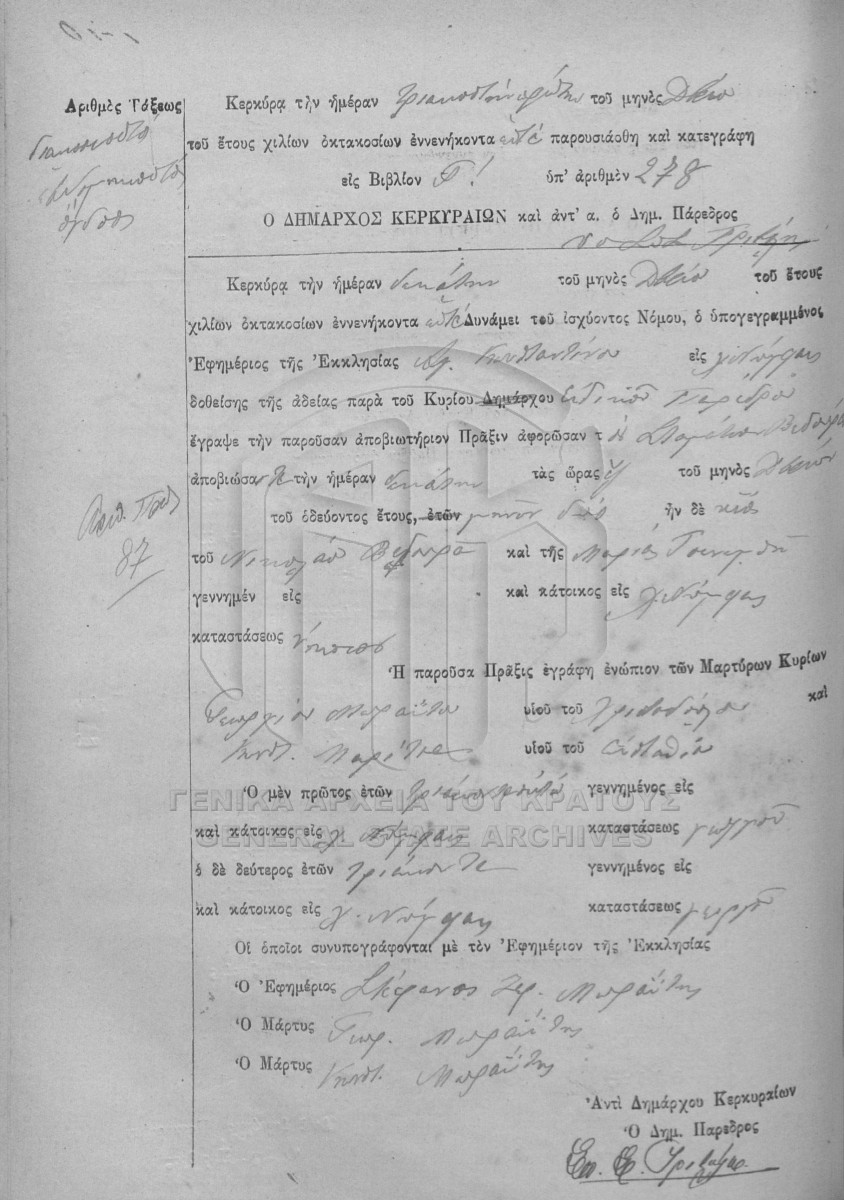 Ἀριθμὸς Τάξεως
διακοσιοστὸς
ἑβδομηκοστὸς
ὄγδοος
Κερκύρα τὴν ἡμέραν τριακοστὴν πρώτην τοῦ μηνὸς
τοῦ ἔτους χιλίων ὀκτακοσίων ἐννενήκοντα παρουσιάσθη καὶ κατεγράφη
εἰς Βιβλίον Γ! ὑπ' ἀριθμὸν 278
Ο ΔΗΜΑΡΧΟΣ ΚΕΡΚΥΡΑΙΩΝ καὶ ἀντ' α. ὁ Δημ. Πάρεδρος
Κερκύρα τὴν ἡμέραν δεκάτην τοῦ μηνὸς τοῦ ἔτους
χιλίων ὀκτακοσίων ἐννενήκοντα Δυνάμει τοῦ ἰσχύοντος Νόμου, ὁ ὑπογεγραμμένος
Ἐφημέριος τῆς Ἐκκλησίας Ἁγ. Κωνσταντίνου εἰς χ. Νύμφας
δοθείσης τῆς ἀδείας παρὰ τοῦ Κυρίου Δημάρχου εἰδικοῦ Παρέδρου
ἔγραψε τὴν παροῦσαν ἀποβιωτήριον Πρᾶξιν ἀφορῶσαν τ ὸν
ἀποβιώσα τὴν ἡμέραν δεκάτην τὰς ὥρας τοῦ μηνὸς
τοῦ ὁδεύοντος ἔτους, ἐτῶν μηνῶν ἦν δὲ υἱὸς
Ἀριθ. Πρωτ.
87
τοῦ Νικολάου καὶ τῆς Μαρίας
γεννημέν εἰς καὶ κάτοικος εἰς χ. Νύμφας
καταστάσεως νήπιον
Ἡ παροῦσα Πρᾶξις ἐγράφη ἐνώπιον τῶν Μαρτύρων Κυρίων
Γεωργίου Μωραΐτου υἱοῦ τοῦ Χριστοδούλου καὶ
Κωνστ. Μωραΐτης υἱοῦ τοῦ Εὐσταθίου
Ὁ μὲν πρῶτος ἐτῶν γεννημένος εἰς
ΓΕΝΙΚΑ ΑΡΧΕΙΑ ΤΟΥ ΚΡΑΤΟΥΣ
καὶ κάτοικος εἰς χ. Νύμφας καταστάσεως γεωργοῦ
GENERAL STATE ARCHIVES
ὁ δὲ δεύτερος ἐτῶν τριάκοντα γεννημένος εἰς
καὶ κάτοικος εἰς χ. Νύμφας καταστάσεως γεωργοῦ
Οἱ ὁποῖοι συνυπογράφονται μὲ τὸν Ἐφημέριον τῆς Ἐκκλησίας
Ὁ Ἐφημέριος Στέφανος Ἱερ. Μωραΐτης
Ὁ Μάρτυς Γεωρ. Μωραΐτης
Ὁ Μάρτυς Κωνστ. Μωραΐτης
Ἀντὶ Δημάρχου Κερκυραίων
Ὁ Δημ. Πάρεδρος